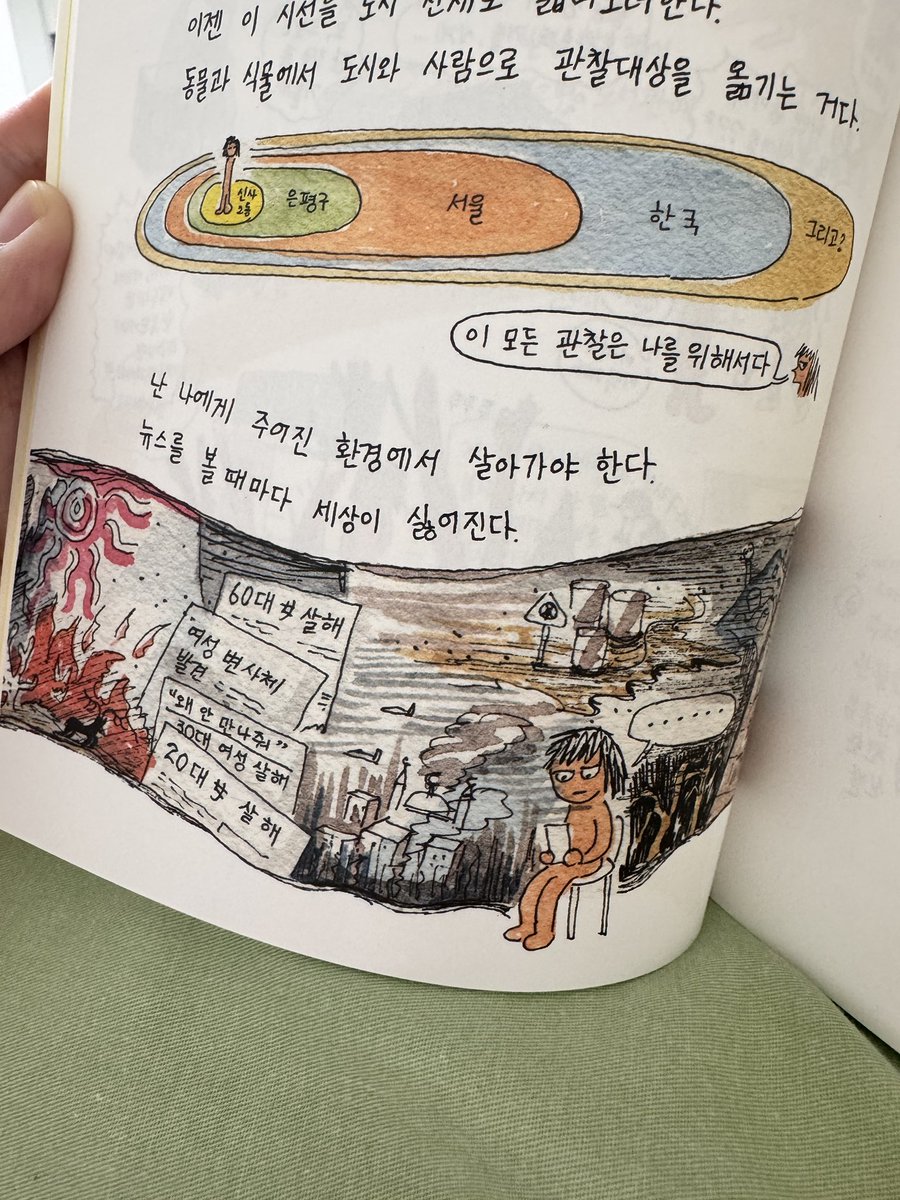 이젠 이 시선을 도시 전체로 넓혀보려한다.
동물과 식물에서 도시와 사람으로 관찰대상을 옮기는 거다.
신사
2동
은평구
서울
한국
그리고?
이 모든 관찰은 나를 위해서다
난 나에게 주어진 환경에서 살아가야 한다.
뉴스를 볼 때마다 세상이 싫어진다.
60대 女 살해
여성 변사체
발견
"왜 안 만나줘"
30대 여성 살해
20대 女 살해
.......